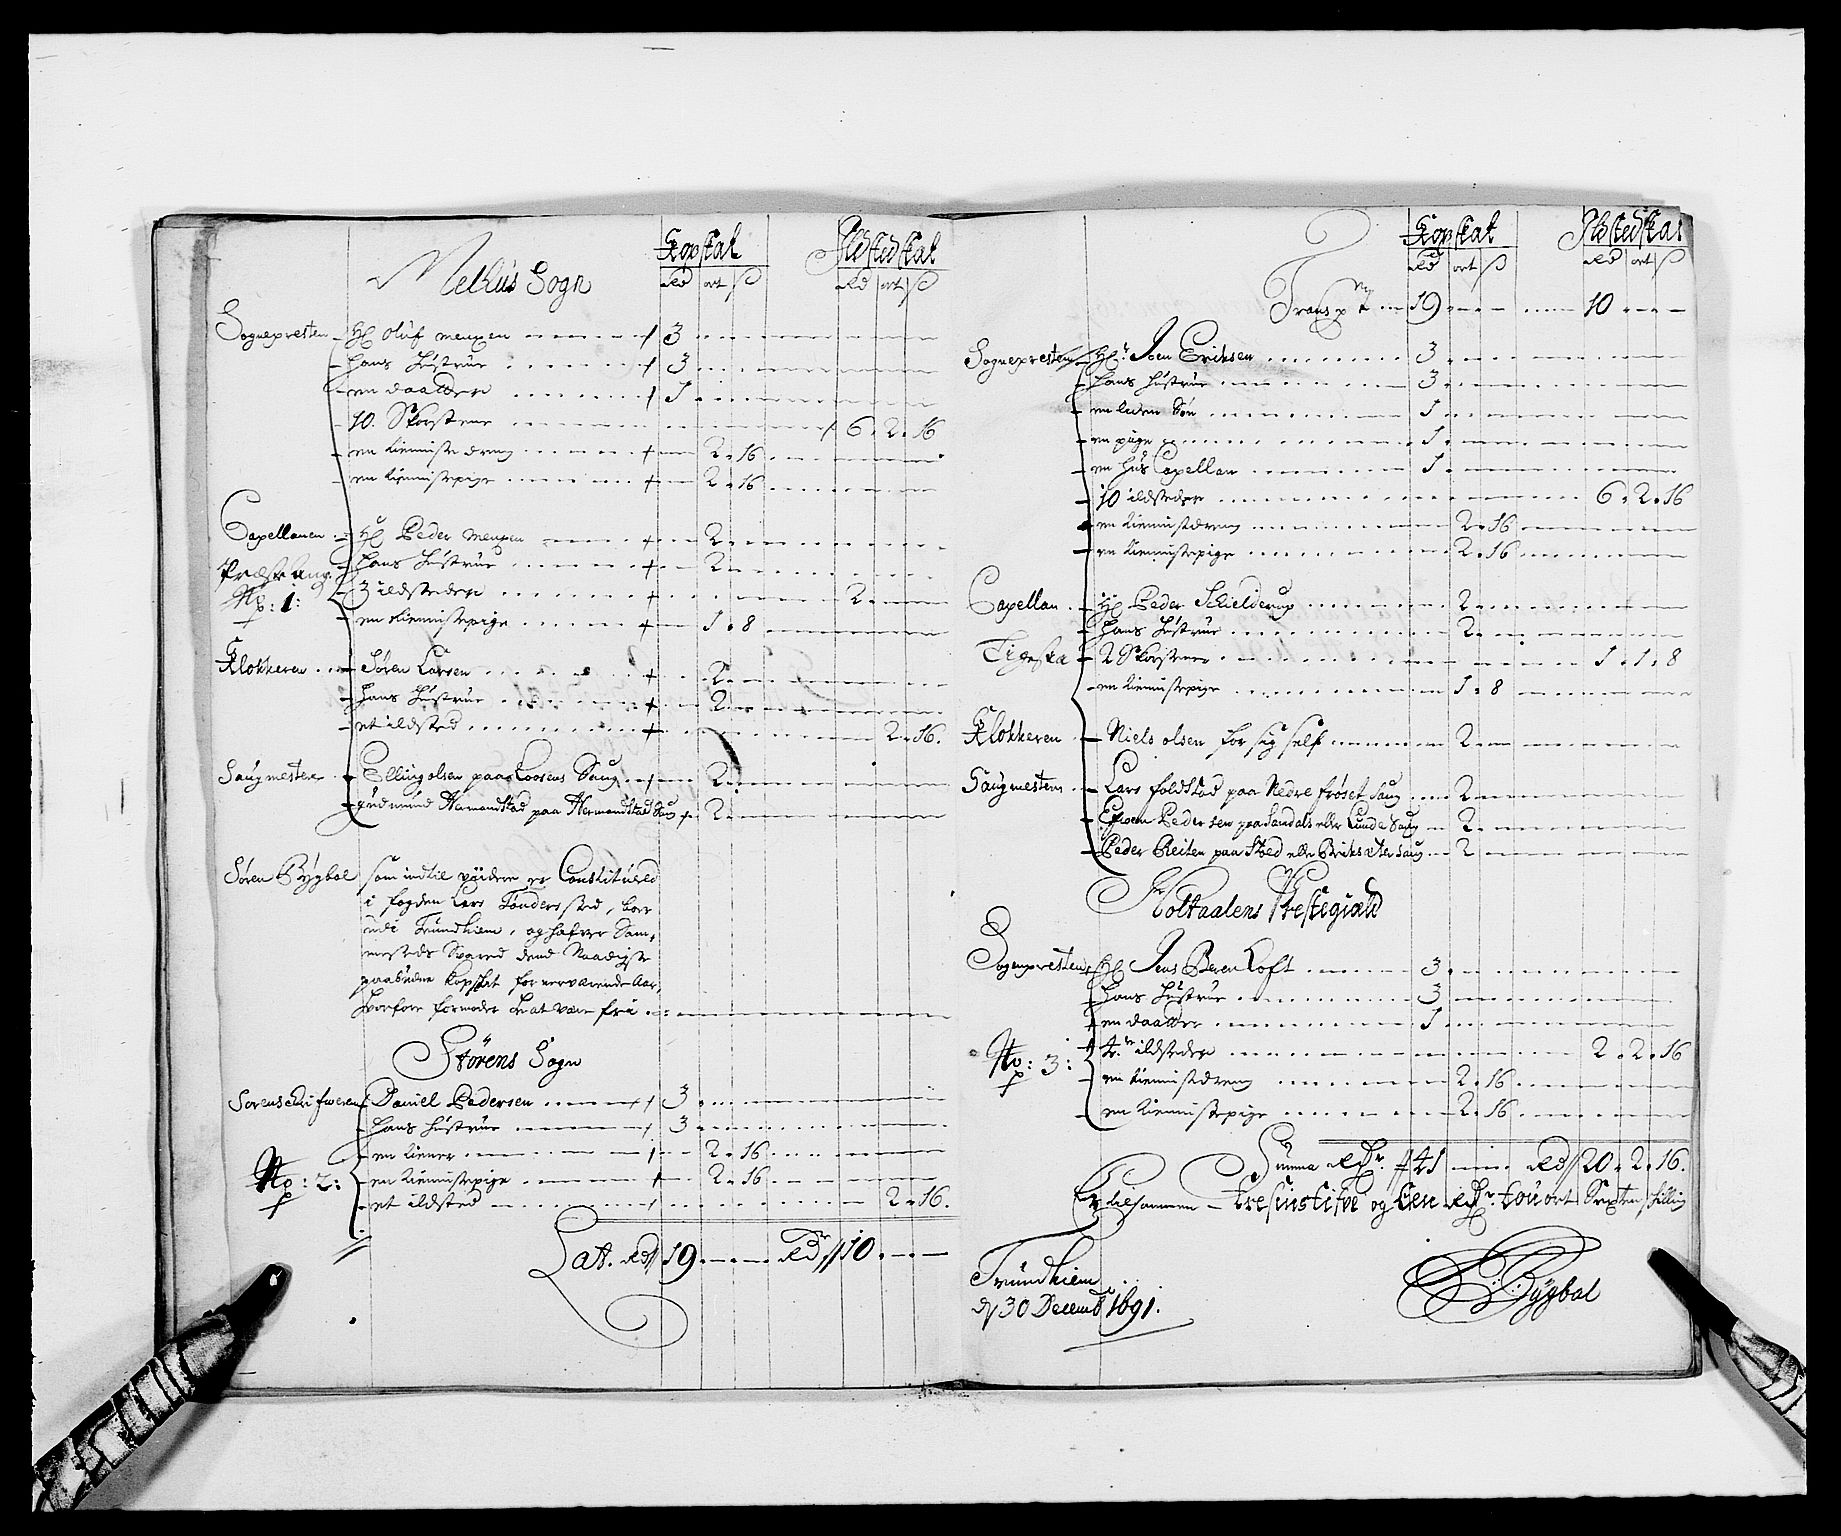 Kopskat Ildstedskat
Melhus Sogn Rd ort ß Rd ort ß
Sognepresten Hr Oluf mengen 3
hans hustrue 3
en daatter 1
10. Skorstene 6. 2. 16
en tienniste dreng 2. 16
en tiennistepige 2. 16
Capellanen Hr Peder mengen 2
hans hustrue 2
No: 1: 3 ildsteder 2
en tiennistepige 1. 8
Klokkeren Søren Larsen 2
hans hustrue 2
et ildsted 2. 16.
Saugmestere Elling olsen paa Loosens Saug 2
gudmund Hermandstad paa Hermandstad Saug 2
Søren Bygbal som indtil videre er Constitüered
i fogden Lars Tønders sted, boer
udi Trundhiem, og hafver Sam=
mesteds Svared dend Naadigst
paabudne Kopskat for nerværende Aar,
hvorfore formoder her at være fri
Størens Sogn
Sorenschrifweren Daniel Pedersen 3
hans hustrue 3
en tiener 2. 16
No: 2: en tiennistepige 2. 16
et ildsted 2. 16.
Lat. Rdr 19 Rdr 10
Kopskat Ildstedskat
Rd ort ß Rd ort ß
Transpt 19 10
Sognepresten Hr. Joen Eriksen 3
hans hustrue 3
en liden Søn 1
en pige 1
en hus Capellan 1
10 ildsteder 6. 2. 16
en tiennistdreng 2. 16
en tiennistepige 2. 16
Capellan Hr Peder Schielderup 2
hans hustrue 2
2 Skorstener 1. 1. 8
en tiennistepige 1. 8
Klokkeren Niels olsen for sig self 2
Saugmestern Lars foldstad paa Nedre frøset saug 2
Efwen Pedersen paa Sandals eller Lunde Saug 2
Peder Reiten paa Stoed eller Brikseter saug 2
Holtaalens Prestegiæld
Sogenpresten Hr Jens Beren Loft 3
hans hustrue 3
en daatter 1
No: 3: 4re ildsteder 2. 2. 16
en tiennistdreng 2. 16
en tiennistepige 2. 16
Summa Rdr. 41 Rdr 20. 2. 16.
Er tilsammen tresinstifve og Een Rdr. tou ort Sexten skilling
Trundhiem
d 30 Decemb 1691.
S: Bygbal